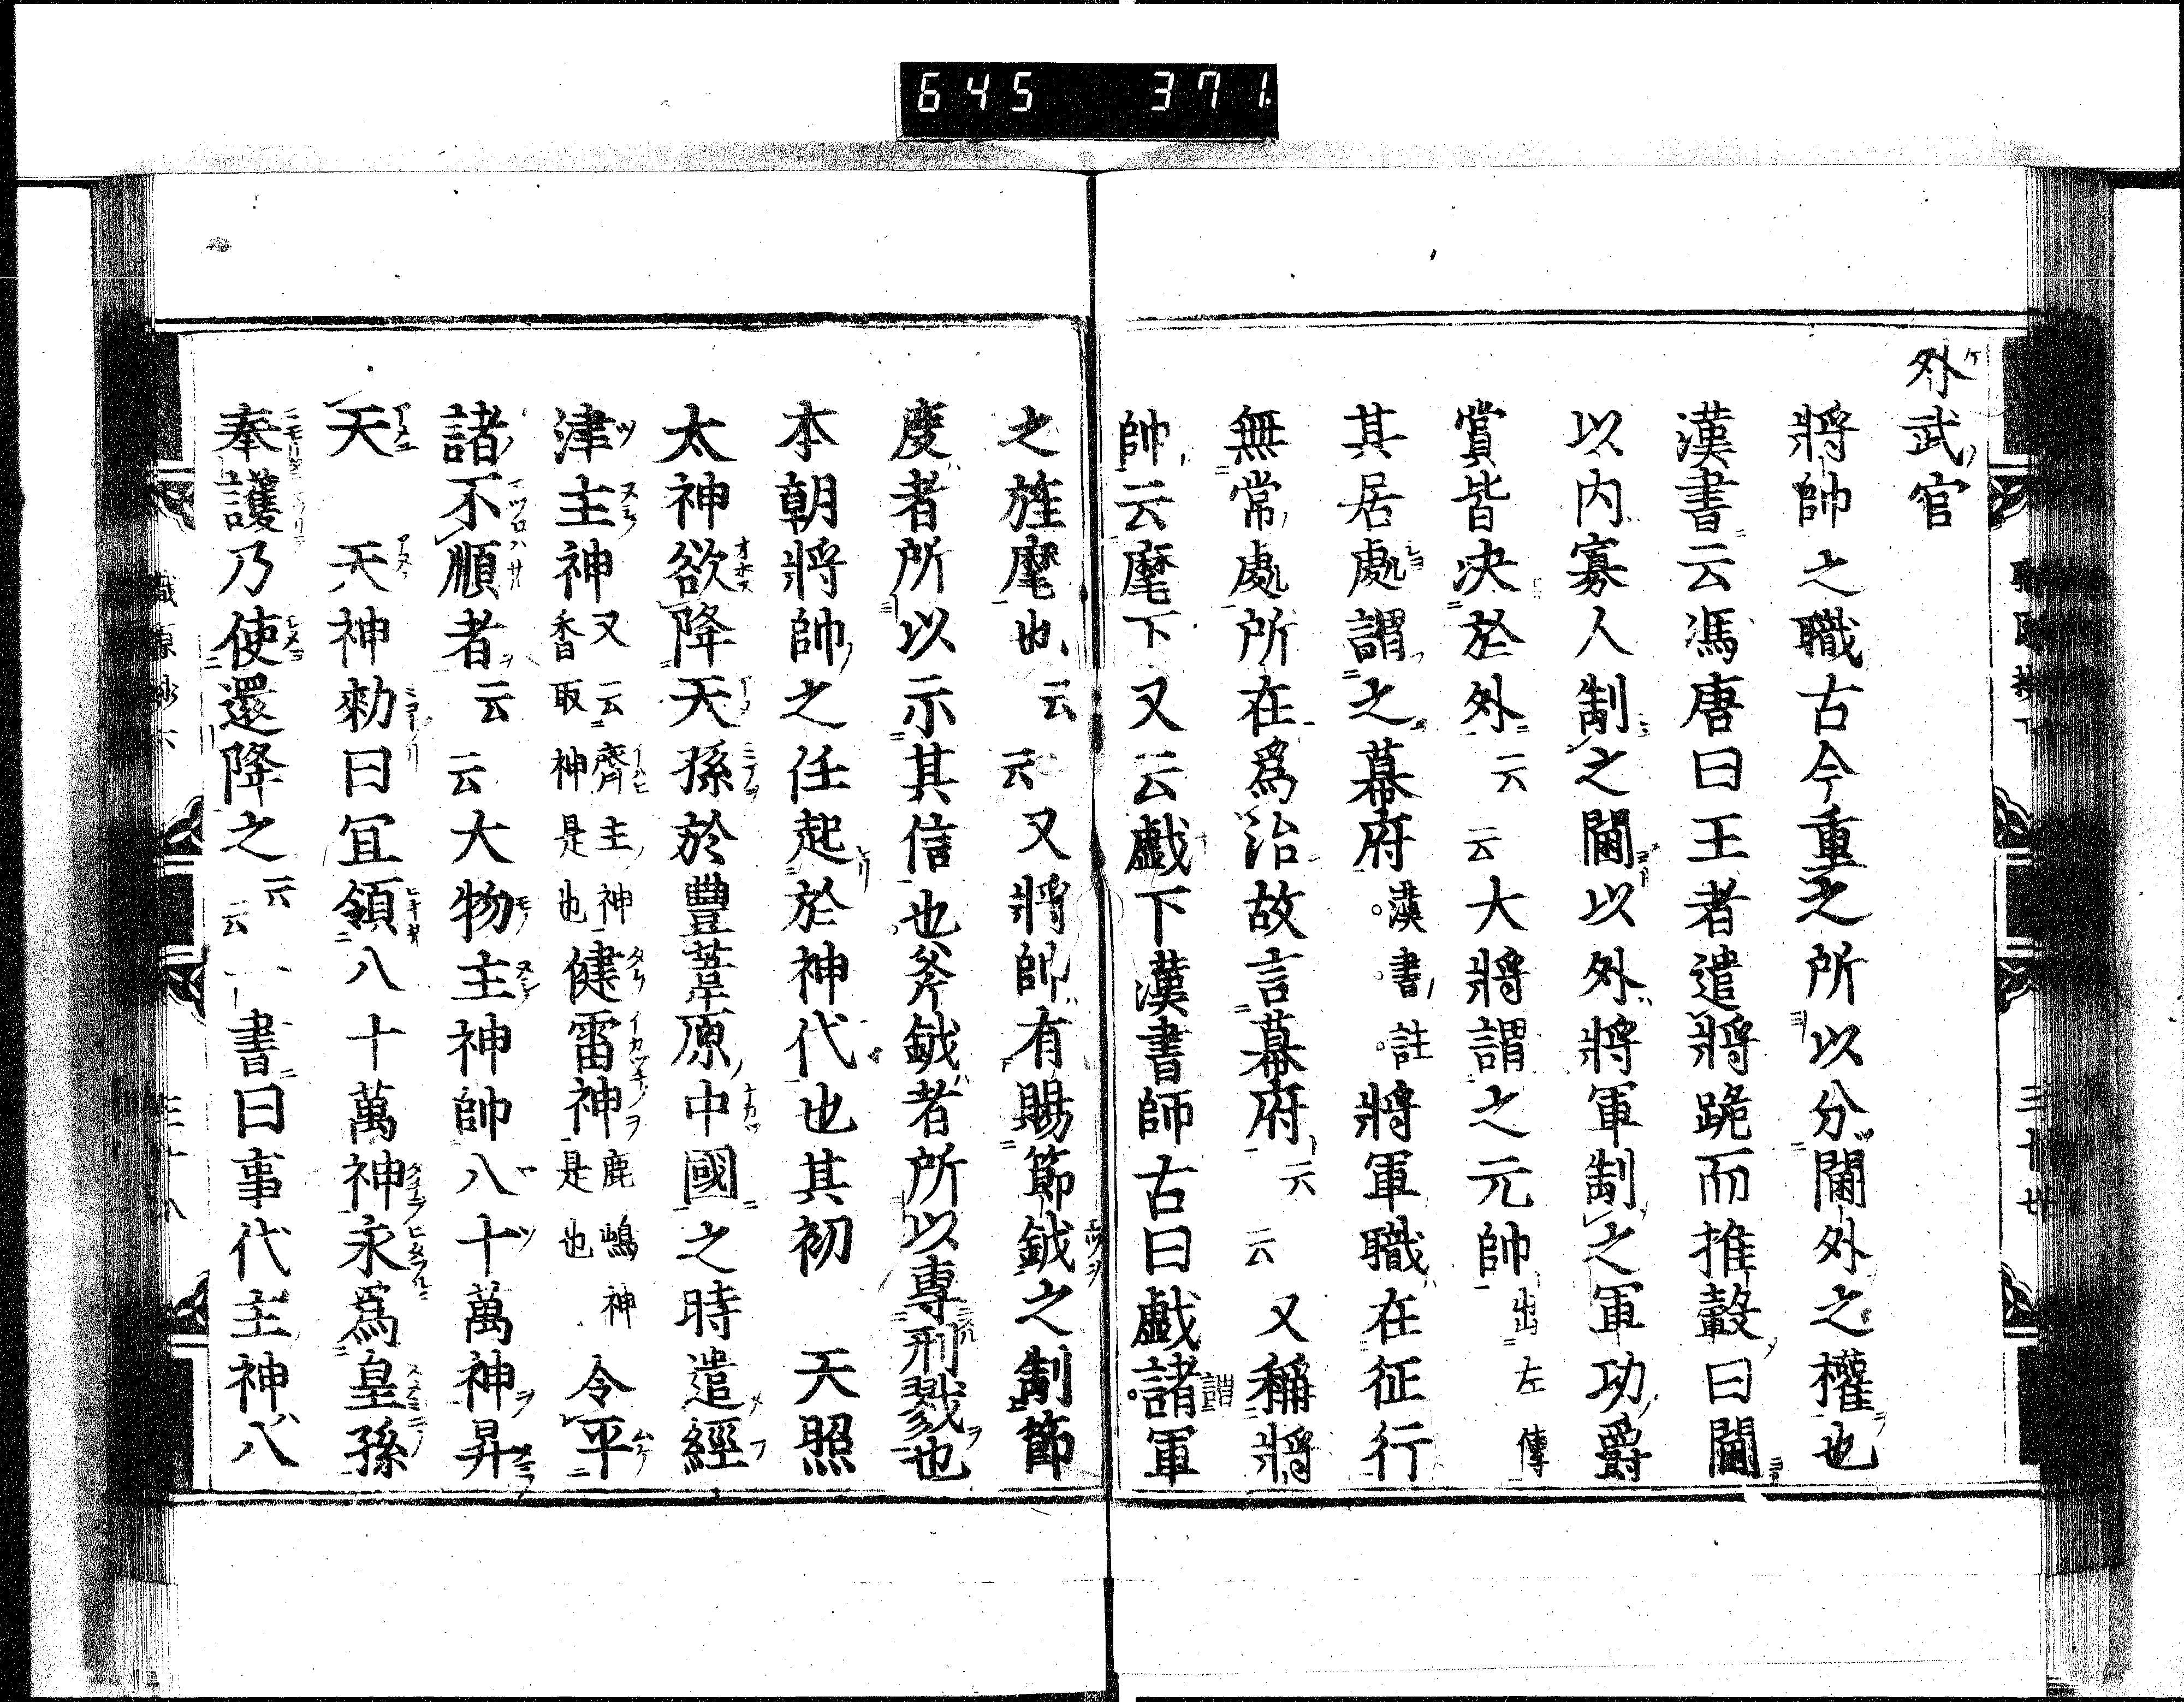 645 371
外武官
將帥之職古今重之所以分閫外之權也
漢書云馮唐曰王者遣將跪而推轂曰閫
以内寡人制之閫以外將軍制之軍功爵
賞皆决於外云云大將謂之元帥出左傳
其居處謂之幕府漢書註將軍職在征行
無常處所在爲治故言幕府云云又稱將
帥云麾下又云戲下漢書師古曰戲謂諸軍
之旌麾也云云又將帥有賜節鉞之制節
度者所以示其信也斧鉞者所以專刑戮也
本朝將帥之任起於神代也其初 天照
太神欲降天孫於豊葦原中國之時遣經
津主神又云齊主神香取神是也健雷神鹿嶋神是也令平
諸不順者云云大物主神帥八十萬神昇
天 天神勅曰宜領八十萬神永爲皇孫
奉護乃使還降之云云一書曰事代主神八